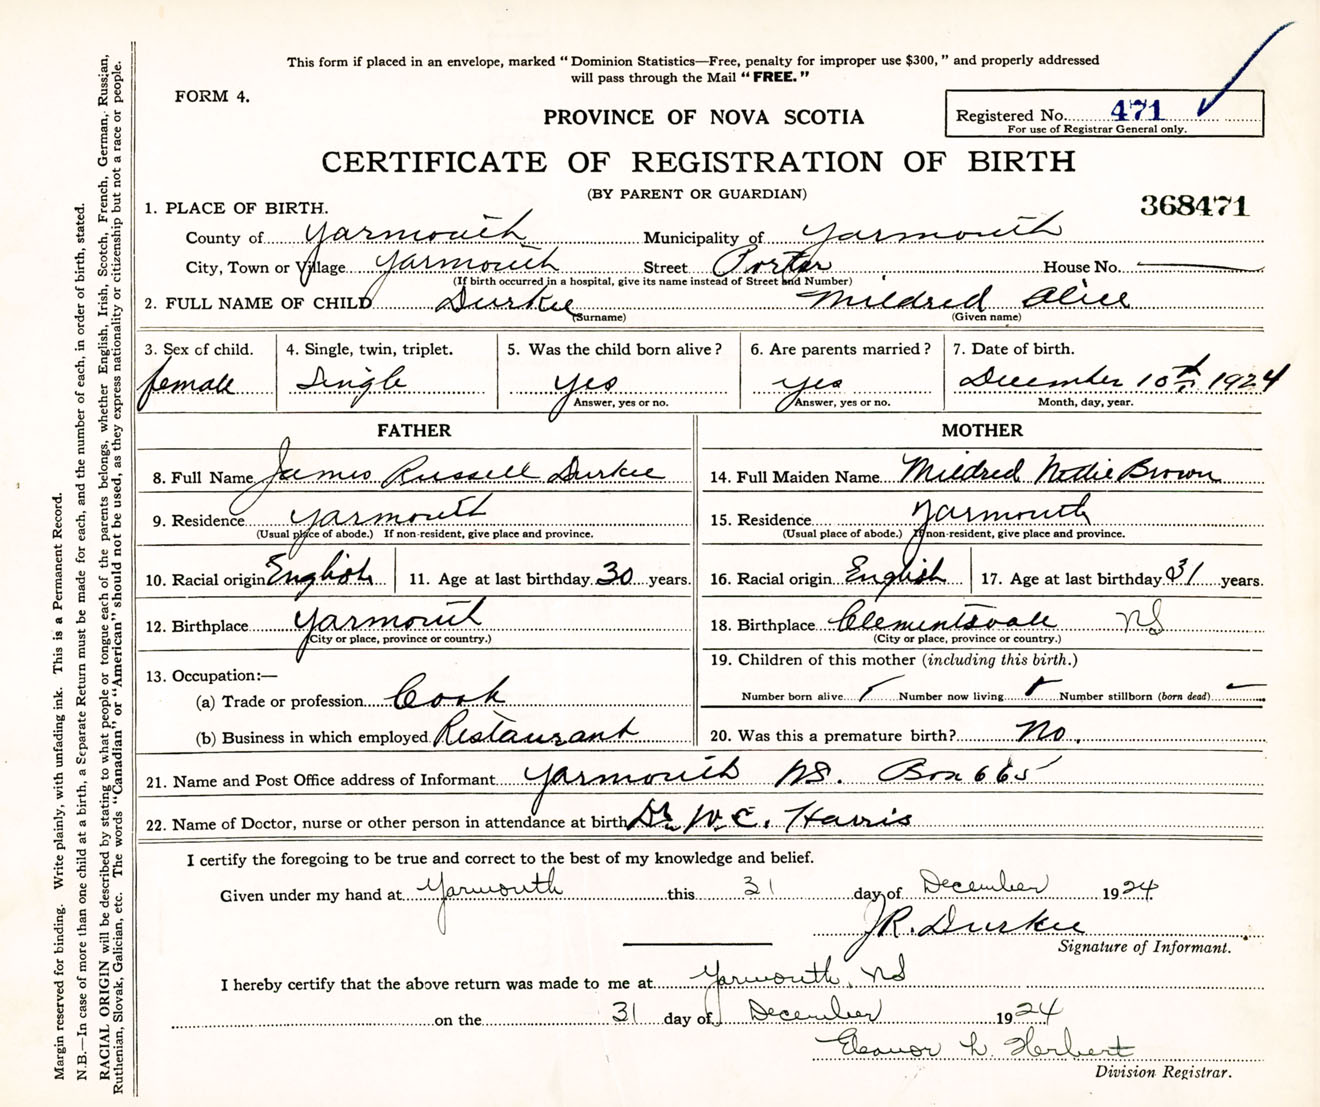 This form if placed in an envelope, marked “Dominion Statistics—Free, penalty for improper use $300,” and properly addressed
will pass through the Mail “FREE.”
FORM 4.
PROVINCE OF NOVA SCOTIA
Registered No. 471
For use of Registrar General only.
CERTIFICATE OF REGISTRATION OF BIRTH
(BY PARENT OR GUARDIAN)
368471
1. PLACE OF BIRTH.
County of Yarmouth Municipality of Yarmouth
City, Town or Village Yarmouth Street Porter House No. —
(If birth occurred in a hospital, give its name instead of Street and Number)
2. FULL NAME OF CHILD Durkee Mildred Alice
(Surname) (Given name)
3. Sex of child. 4. Single, twin, triplet. 5. Was the child born alive? 6. Are parents married? 7. Date of birth.
female Single yes yes December 10th 1924
Answer, yes or no. Answer, yes or no. Month, day, year.
FATHER MOTHER
8. Full Name James Russell Durkee 14. Full Maiden Name Mildred Nettie Brown
9. Residence Yarmouth 15. Residence Yarmouth
(Usual place of abode.) If non-resident, give place and province. (Usual place of abode.) If non-resident, give place and province.
10. Racial origin English 11. Age at last birthday 30 years. 16. Racial origin English 17. Age at last birthday 31 years.
12. Birthplace Yarmouth 18. Birthplace Clementsvale NS
(City or place, province or country.) (City or place, province or country.)
13. Occupation:— 19. Children of this mother (including this birth.)
(a) Trade or profession Cook Number born alive 1 Number now living 1 Number stillborn (born dead) —
(b) Business in which employed Restaurant 20. Was this a premature birth? No.
21. Name and Post Office address of Informant Yarmouth NS. Box 665
22. Name of Doctor, nurse or other person in attendance at birth Dr W. C. Harris
I certify the foregoing to be true and correct to the best of my knowledge and belief.
Given under my hand at Yarmouth this 31 day of December 1924
J R. Durkee
Signature of Informant.
I hereby certify that the above return was made to me at Yarmouth, NS
on the 31 day of December 1924
Eleanor L. Herbert
Division Registrar.
Margin reserved for binding. Write plainly, with unfading ink. This is a Permanent Record.
N.B.—In case of more than one child at a birth, a Separate Return must be made for each, and the number of each, in order of birth, stated.
RACIAL ORIGIN will be described by stating to what people or tongue each of the parents belongs, whether English, Irish, Scotch, French, German, Russian,
Ruthenian, Slovak, Galician, etc. The words “Canadian” or “American” should not be used, as they express nationality or citizenship but not a race or people.